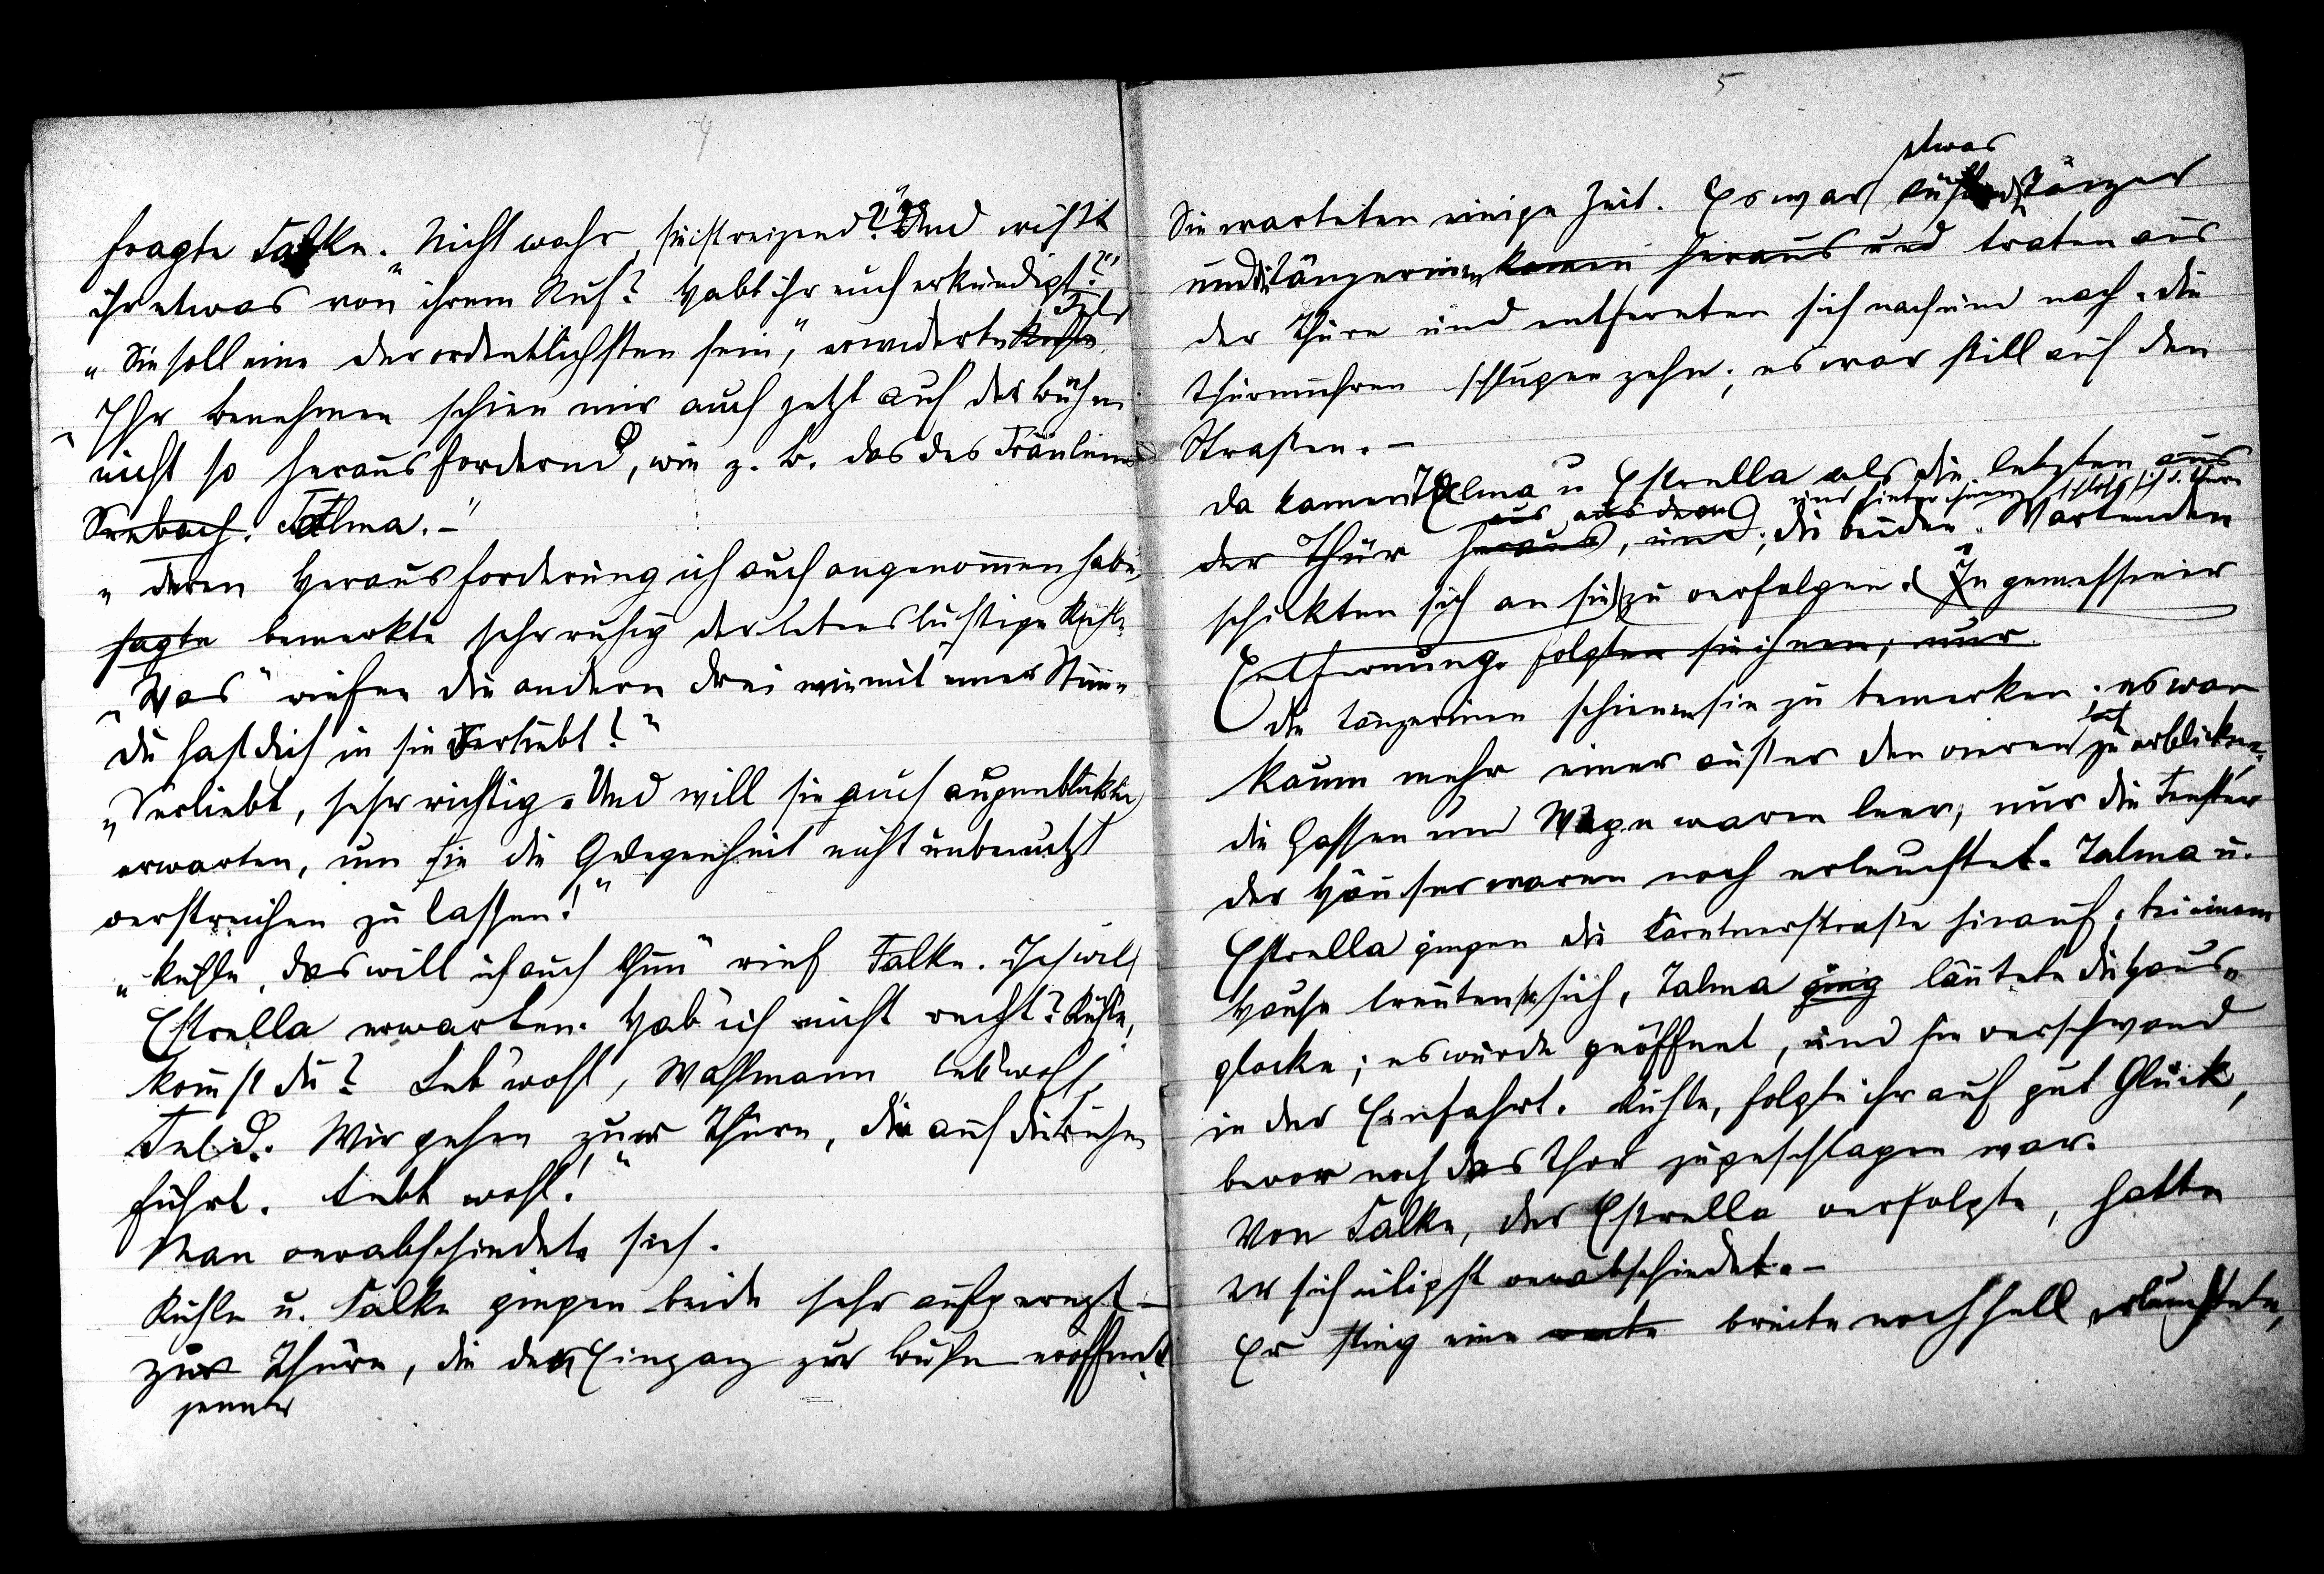 4
fragte Falke. „Nicht wahr, sie ist reizend?" „Und wißt
ihr etwas von ihrem Ruf? Habt ihr euch erkundigt?"
„Sie soll eine der ordentlichsten sein," erwiderte Kühle Feld
„Ihr Benehmen schien mir auch jetzt auf der Bühne
nicht so herausfordernd, wie z. B. das des Fräuleins
Seebach. Talma. –"
„Deren Herausforderung ich auch angenomen habe,
sagte bemerkte sehr ruhig der lebenslustige Kühle.
„Was" riefen die andern drei wie mit einer Stimme
du hast dich in sie verliebt?"
„Verliebt, sehr richtig. Und will sie auch augenblicklich
erwarten, um die Gelegenheit nicht unbenutzt
verstreichen zu lassen!"
„Kühle, das will ich auch thun" rief Falke. Ich will
Estrella erwarten. Hab' ich nicht recht? Kühle,
komst du? Leb' wohl, Wahlmann, leb' wohl,
Feld. Wir gehen zur Thüre, die auf die Bühne
führt. Lebt wohl!"
Man verabschiedete sich.
Kühle u. Falke gingen beide sehr aufgeregt –
zur Thüre, die den Eingang zur Bühne eröffnet.
jenen
5
etwas
Sie warteten einige Zeit. Es war kühl Tänzer
und Tänzerinen kamen heraus und traten aus
der Thüre und entfernten sich nach und nach. Die
Thurmuhren schlugen zehn; es war still auf den
Straßen. –
Da kamen Talma u Estrella als die letzten aus
aus aus dem und hinter ihnen schloß sich d. Thüre
der Thür heraus, und; die beiden Wartenden
schickten sich an sie zu verfolgen. In gemessener
Entfernung folgten sie ihnen, nur
die Tänzerinen schienen sie zu bemerken. es war
fast
kaum mehr einer außer den vieren zu erblicken.
die Gassen und Wege waren leer, nur die Fenster
der Häuser waren noch erleuchtet. Talma u.
Estrella gingen die Kärntnerstraße hinauf; bei einem
Hause trennten sie sich, Talma ging läutete die Haus-
glocke; es wurde geöffnet, und sie verschwand
in der Einfahrt. Kühle, folgte ihr auf gut Glück,
bevor noch das Thor zugeschlagen war.
Von Falke, der Estrella verfolgte, hatte
er sich eiligst verabschiedet. –
Er stieg eine breite noch hell erleuchtete,